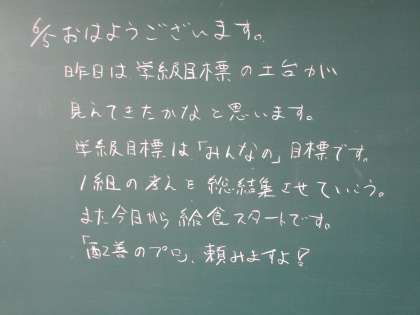 6/5 おはようございます。
昨日は学級目標の土台が
見えてきたかなと思います。
学級目標は「みんなの」目標です。
1組の考えを総結集させていこう。
また今日から給食スタートです。
「配善のプロ」、頼みますよ!